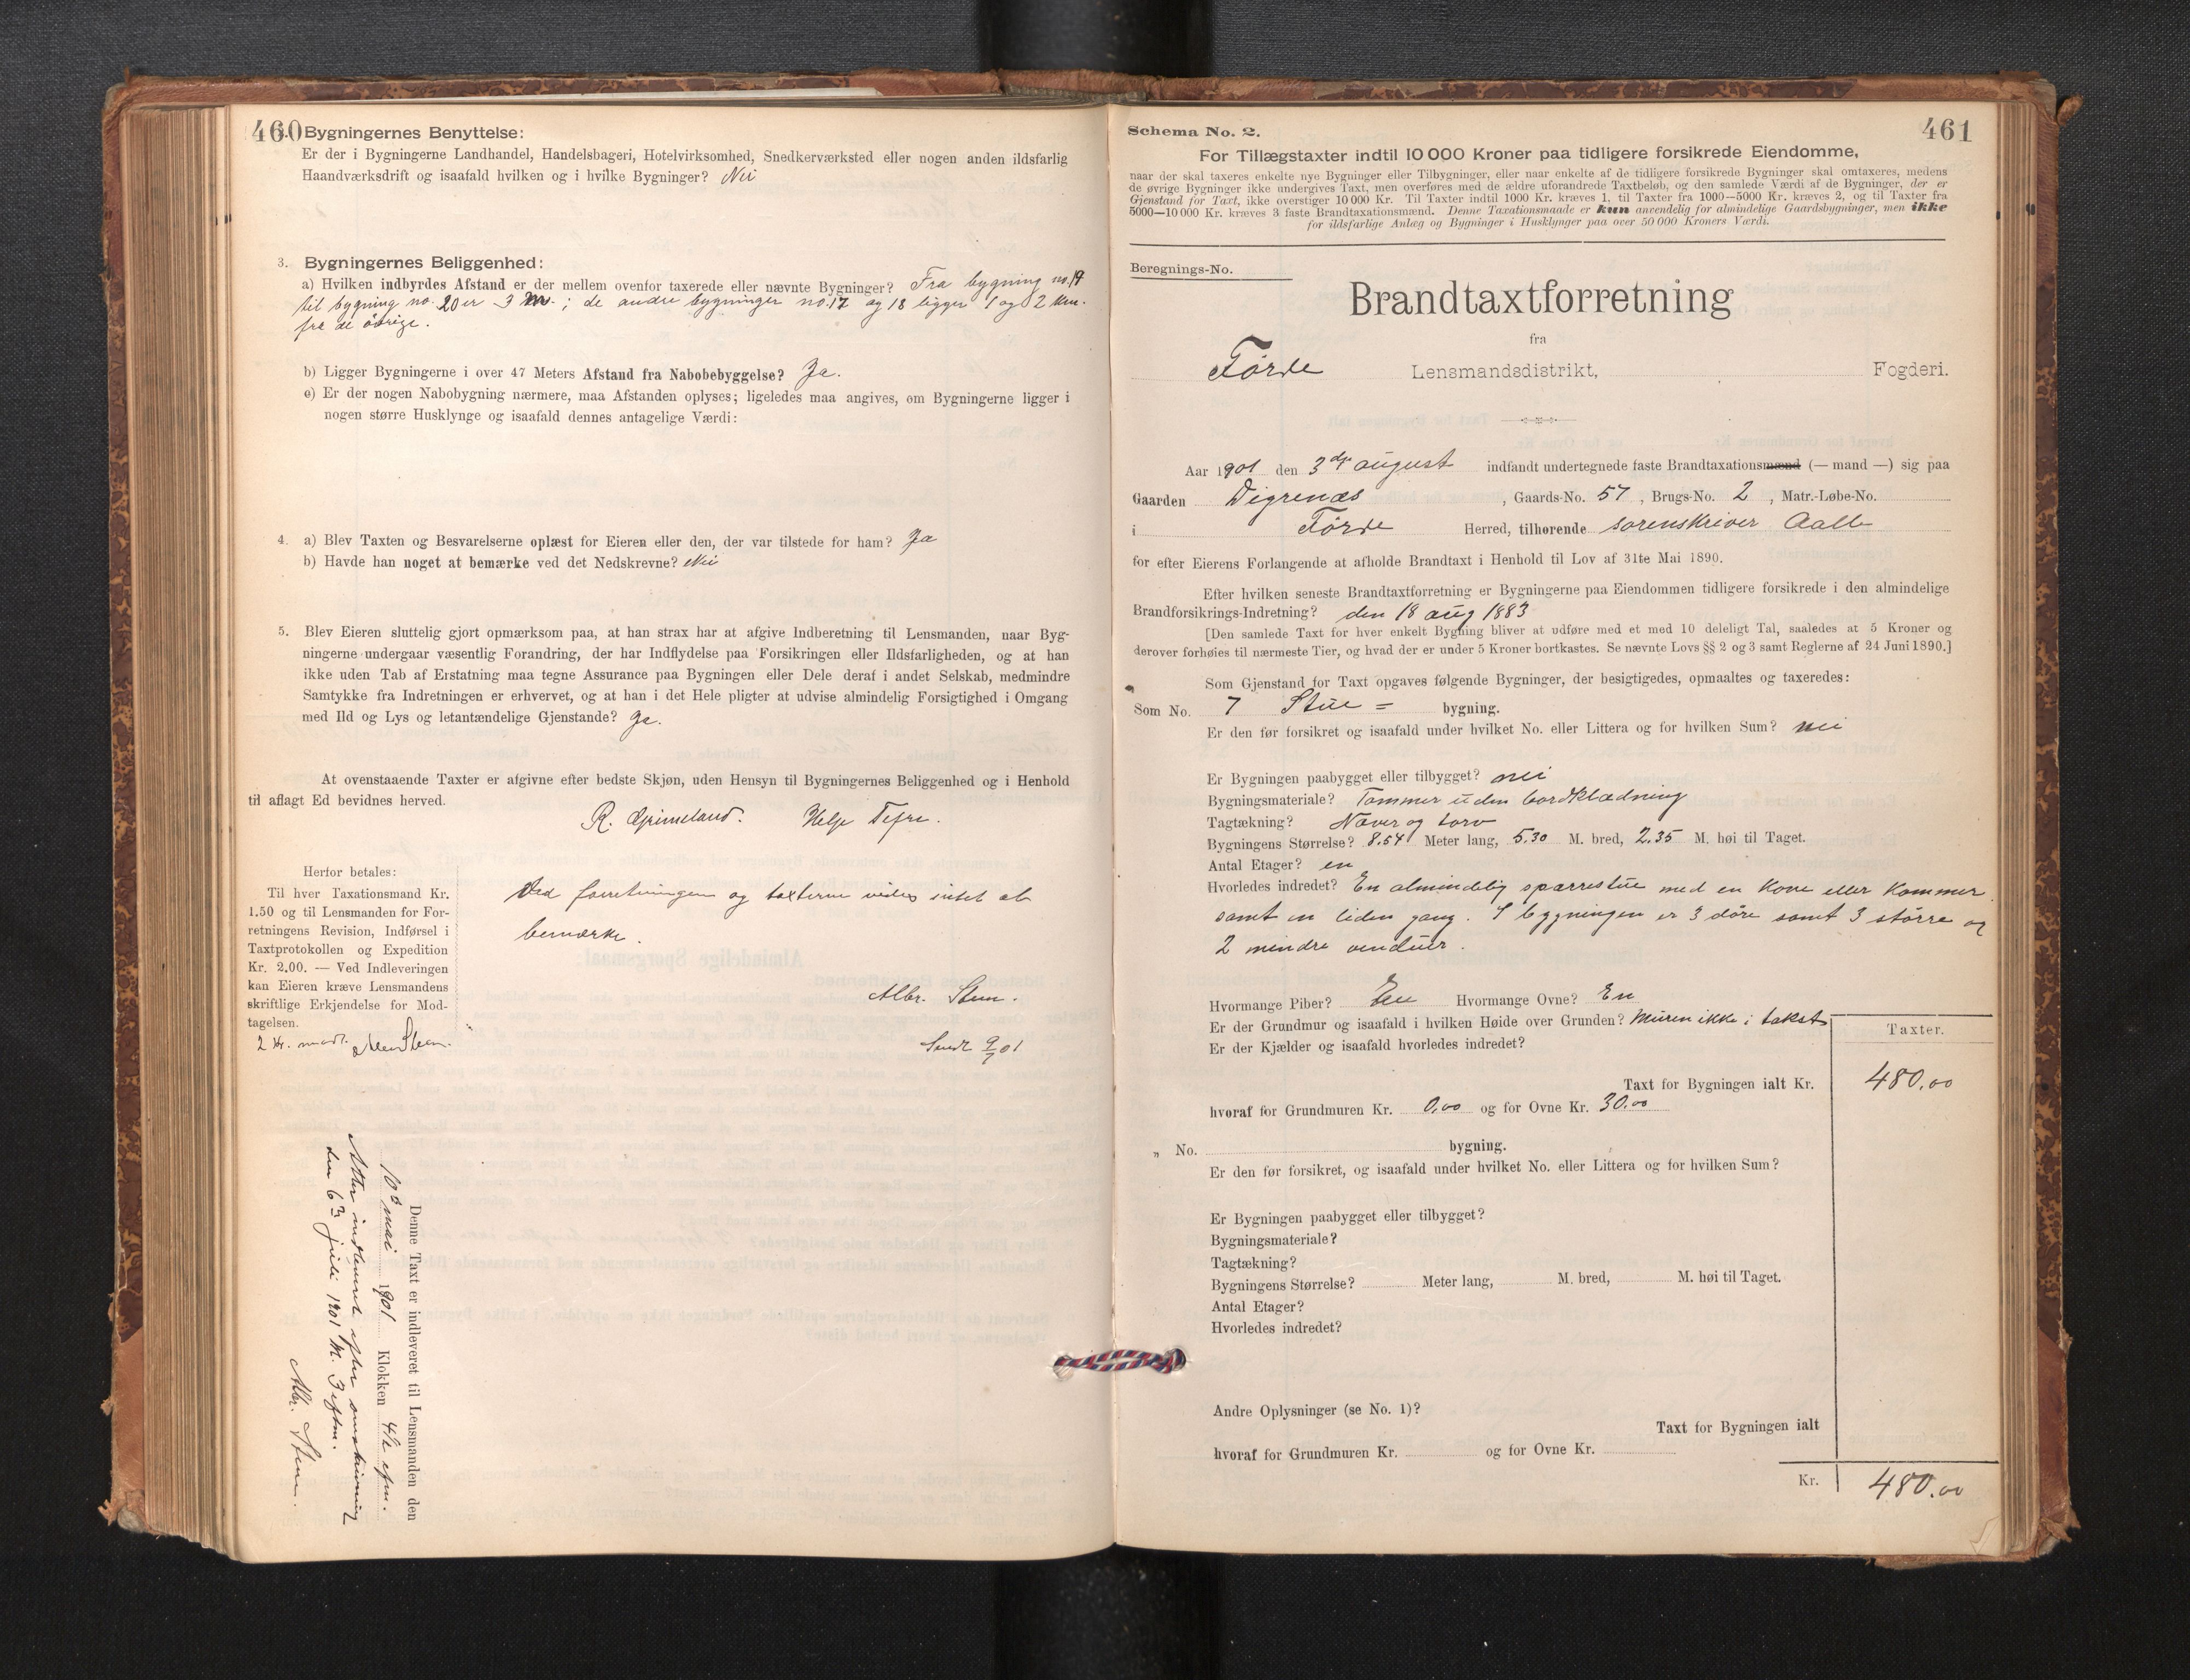 460
Bygningernes Benyttelse:
Er der i Bygningerne Landhandel, Handelsbageri, Hotelvirksomhed, Snedkerværksted eller nogen anden ildsfarlig
Haandværksdrift og isaafald hvilken og i hvilke Bygninger? Nei
3. Bygningernes Beliggenhed:
a) Hvilken indbyrdes Afstand er der mellem ovenfor taxerede eller nævnte Bygninger? Fra bygning no. 19
til bygning no. 20 er 3 m.; de andre bygninger no. 17 og 18 ligger 1 og 2 km.
fra de övrige.
b) Ligger Bygningerne i over 47 Meters Afstand fra Nabobebyggelse? Ja.
c) Er der nogen Nabobygning nærmere, maa Afstanden oplyses; ligeledes maa angives, om Bygningerne ligger i
nogen større Husklynge og isaafald dennes antagelige Værdi:
4. a) Blev Taxten og Besvarelserne oplæst for Eieren eller den, der var tilstede for ham? Ja
b) Havde han noget at bemærke ved det Nedskrevne? Nei
5. Blev Eieren sluttelig gjort opmærksom paa, at han strax har at afgive Indberetning til Lensmanden, naar Byg-
ningerne undergaar væsentlig Forandring, der har Indflydelse paa Forsikringen eller Ildsfarligheden, og at han
ikke uden Tab af Erstatning maa tegne Assurance paa Bygningen eller Dele deraf i andet Selskab, medmindre
Samtykke fra Indretningen er erhvervet, og at han i det Hele pligter at udvise almindelig Forsigtighed i Omgang
med Ild og Lys og letantændelige Gjenstande? Ja.
At ovenstaaende Taxter er afgivne efter bedste Skjøn, uden Hensyn til Bygningernes Beliggenhed og i Henhold
til aflagt Ed bevidnes herved.
R. Grimeland. Helje Tefre.
Herfor betales:
Til hver Taxationsmand Kr.
1.50 og til Lensmanden for For-
retningens Revision, Indførsel i
Taxtprotokollen og Expedition
Kr. 2.00. — Ved Indleveringen
kan Eieren kræve Lensmandens
skriftlige Erkjendelse for Mod-
tagelsen.
2 kr. modt.
Ved forretningen og taxterne vides intet at
bemærke.
Albr. Steen.
Sendt 9/7 01
Denne Taxt er indleveret til Lensmanden den
10de mai 1901 Klokken 4 1/2 efm.
Atter indleveret efter omskrivning
den 6te juli 1901 kl. 3 eftm.
Albr. Steen.
461
Schema No. 2.
For Tillægstaxter indtil 10 000 Kroner paa tidligere forsikrede Eiendomme,
naar der skal taxeres enkelte nye Bygninger eller Tilbygninger, eller naar enkelte af de tidligere forsikrede Bygninger skal omtaxeres, medens
de øvrige Bygninger ikke undergives Taxt, men overføres med de ældre uforandrede Taxtbeløb, og den samlede Værdi af de Bygninger, der er
Gjenstand for Taxt, ikke overstiger 10 000 Kr. Til Taxter indtil 1000 Kr. kræves 1, til Taxter fra 1000—5000 Kr. kræves 2, og til Taxter fra
5000—10 000 Kr. kræves 3 faste Brandtaxationsmænd. Denne Taxationsmaade er kun anvendelig for almindelige Gaardsbygninger, men ikke
for ildsfarlige Anlæg og Bygninger i Husklynger paa over 50 000 Kroners Værdi.
Beregnings-No.
Brandtaxtforretning
fra
Förde Lensmandsdistrikt, Fogderi.
Aar 1901 den 3die august indfandt undertegnede faste Brandtaxationsmænd (— mand —) sig paa
Gaarden Digrenæs, Gaards-No. 57, Brugs-No. 2, Matr.-Løbe-No.
i Förde Herred, tilhørende sorenskriver Aall
for efter Eierens Forlangende at afholde Brandtaxt i Henhold til Lov af 31te Mai 1890.
Efter hvilken seneste Brandtaxtforretning er Bygningerne paa Eiendommen tidligere forsikrede i den almindelige
Brandforsikrings-Indretning? den 18 aug 1883
[Den samlede Taxt for hver enkelt Bygning bliver at udføre med et med 10 deleligt Tal, saaledes at 5 Kroner og
derover forhøies til nærmeste Tier, og hvad der er under 5 Kroner bortkastes. Se nævnte Lovs §§ 2 og 3 samt Reglerne af 24 Juni 1890.]
Som Gjenstand for Taxt opgaves følgende Bygninger, der besigtigedes, opmaaltes og taxeredes:
Som No. 7 Stue = bygning.
Er den før forsikret og isaafald under hvilket No. eller Littera og for hvilken Sum? nei
Er Bygningen paabygget eller tilbygget? nei
Bygningsmateriale? Tømmer uden bordklædning
Tagtækning? Næver og torv
Bygningens Størrelse? 8.54 Meter lang, 5.30 M. bred, 2.35 M. høi til Taget.
Antal Etager? en
Hvorledes indredet? En almindelig sparrestue med en kove eller kammer
samt en liden gang. I bygningen er 3 döre samt 3 större og
2 mindre vinduer.
Hvormange Piber? En Hvormange Ovne? En
Er der Grundmur og isaafald i hvilken Høide over Grunden? Muren ikke i takst
Er der Kjælder og isaafald hvorledes indredet?
Taxter.
Taxt for Bygningen ialt Kr. 480.00
hvoraf for Grundmuren Kr. 0.00 og for Ovne Kr. 30.00
„ No. bygning.
Er den før forsikret, og isaafald under hvilket No. eller Littera og for hvilken Sum?
Er Bygningen paabygget eller tilbygget?
Bygningsmateriale?
Tagtækning?
Bygningens Størrelse? Meter lang, M. bred, M. høi til Taget.
Antal Etager?
Hvorledes indredet?
Andre Oplysninger (se No. 1)?
Taxt for Bygningen ialt
hvoraf for Grundmuren Kr. og for Ovne Kr.
Kr. 480.00